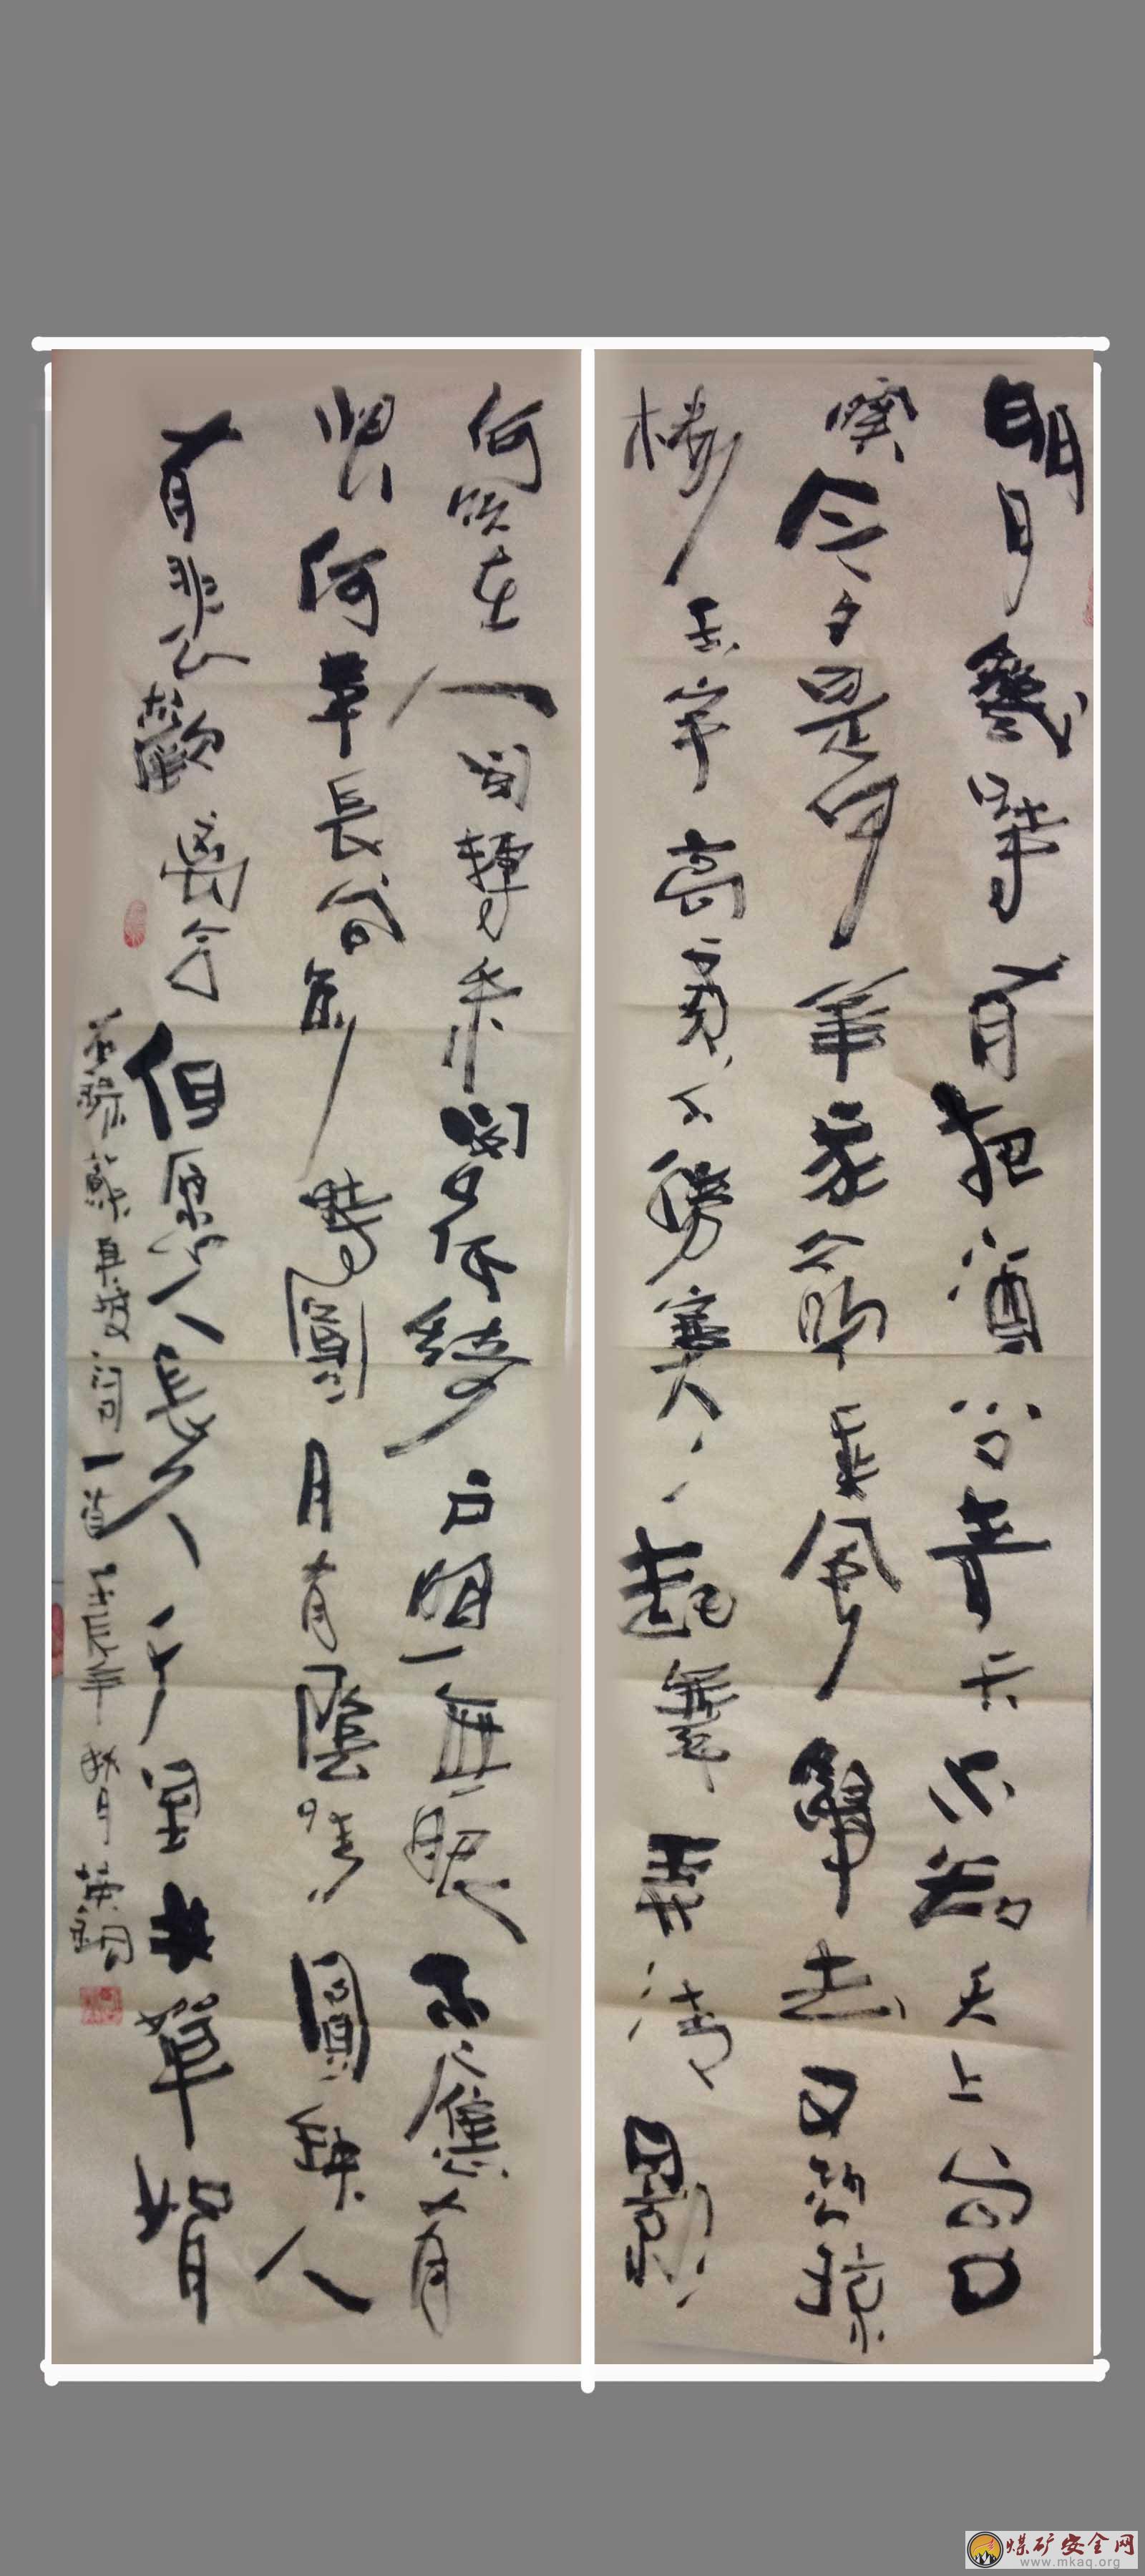 明月幾時有把酒問青天不知天上宮闕
今夕是何年我欲乘風歸去又恐瓊
樓玉宇高處不勝寒起舞弄清影
何似在人間轉朱閣低綺户照無眠不應有
恨何事長向別時圓月有陰晴圓缺人
有悲歡離合但愿人長久千里共嬋娟
蘇東坡詞一首 年秋月
煤矿安全网
www.mkaq.org